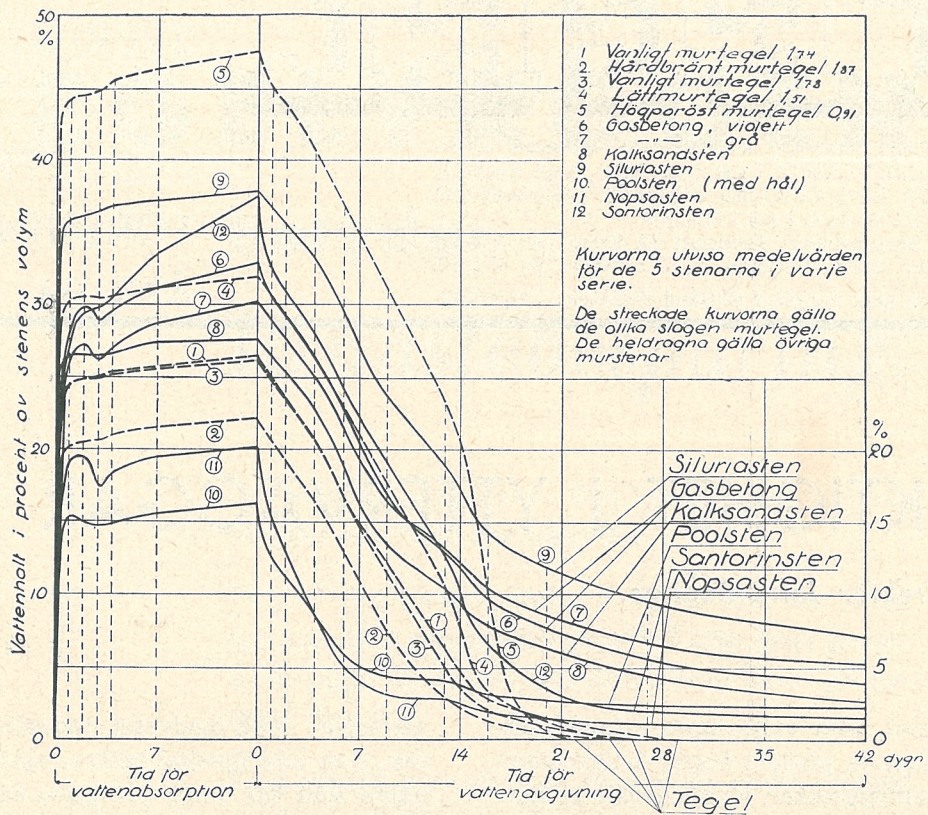 50
%
40
30
20
10
0
Vattenhalt i procent av stenens volym
1 Vanligt murtegel 1,74
2 Hårdbränt murtegel 1,87
3 Vanligt murtegel 1,78
4 Lättmurtegel 1,51
5 Högporöst murtegel 0,91
6 Gasbetong, violett
7 —"— , grå
8 Kalksandsten
9 Siluriasten
10 Poolsten (med hål)
11 Nopsasten
12 Santorinsten
Kurvorna utvisa medelvärden
för de 5 stenarna i varje
serie.
De streckade kurvorna gälla
de olika slagen murtegel.
De heldragna gälla övriga
murstenar
5
9
12
6
4
7
8
1
3
2
11
10
%
20
15
10
5
0
Siluriasten
Gasbetong
Kalksandsten
Poolsten
Santorinsten
Nopsasten
9
7
6
1
5
2
3
4
12
8
10
11
0 7 0 7 14 21 28 35 42 dygn
Tid för
vattenabsorption
Tid för
vattenavgivning
Tegel